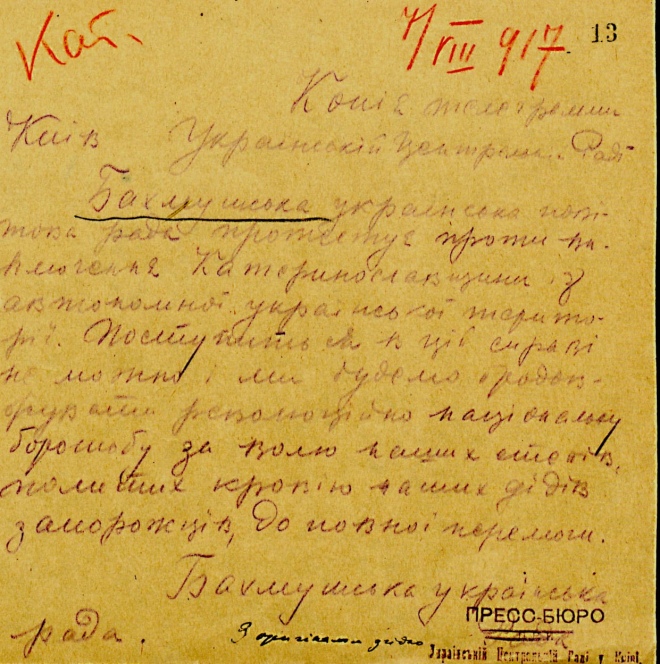 Кат.
7/VIII 917
13
Копія телеграмми
Київ Українській Централ. Раді
Бахмутська українська пові-
това рада протестує проти ви-
ключення Катеринославщини з
автономної української терито-
рії. Поступитьсь в ціі справі
не можно і ми будемо продов-
жувати революційно національну
боротьбу за волю наших степів,
политих кровію наших дідів
запорожців, до повної перемоги.
Бахмутська українська
рада.
З оригіналом згідно
ПРЕСС-БЮРО
Української Центральної Ради у Київі.